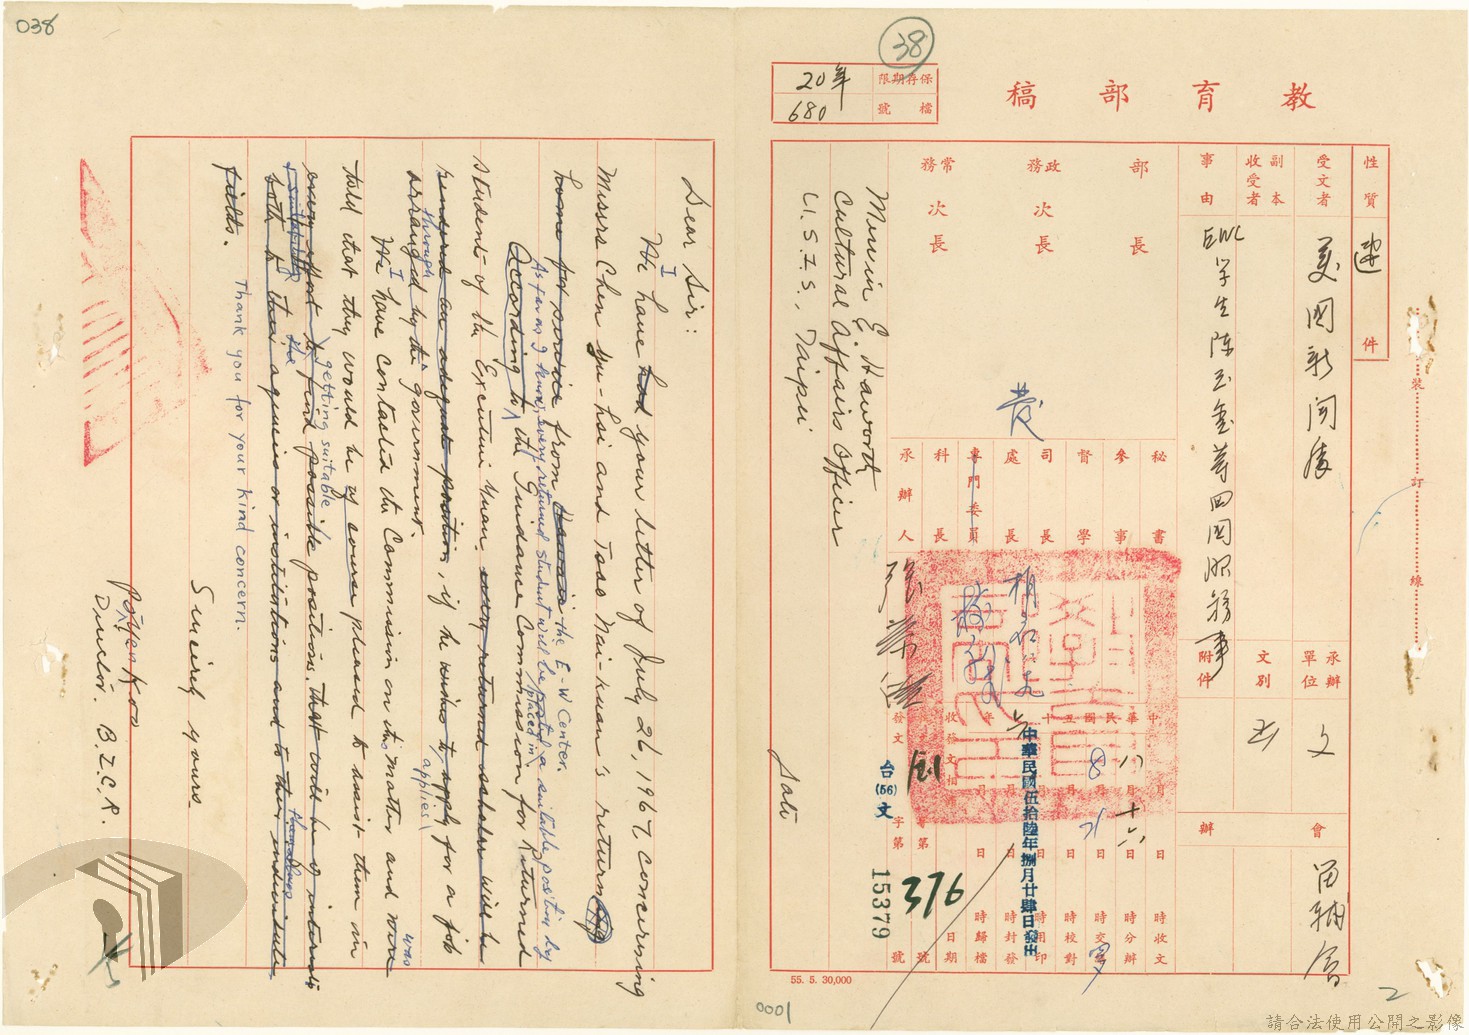 038
38
保存期限
20年
檔號
680
教育部稿
性質
速件
受文者
美國新聞處
副本收受者
事由
EWC學生陳玉金等回國服務事
承辦單位
文
文別
函
附件
會辦
部長
政務次長
常務次長
發
秘書
參事
督學
司長
處長
專門委員
科長
承辦人
中華民國五十年
月
日
時
收文
分辦
交繕
校對
用印
封發
歸檔
中華民國伍拾陸年捌月廿肆日發出
台(56)文
字第
15379
號
376
裝
訂
線
Mervin E. Haworth
Cultural Affairs Officer
U.S.I.S., Taipei
Date
55. 5. 30,000
0001
2
Dear Sir:
We I have had your letter of July 26, 1967 concerning
Missrs Chen Yu-hsi and Tsao Nai-kuan's return
home for service from Hawaii the E-W Center.
According to the Guidance Commission for Returned
As far as I know, every returned student will be posted placed in a suitable position by
Students of the Executive Yuan, every returned scholar will be
rendered an adequate position, if he wishes to apply applies for a job
arranged by through the government.
We I have contacted the Commission on this matter and were was
told that they would be of course pleased to assist them in
every effort to find getting suitable possible positions. that will be of interest
both to their agencies or institutions and to their individual
fields.
Thank you for your kind concern.
Sincerely yours
Po-yen Koo
Director. B.I.C.R.
請合法使用公開之影像